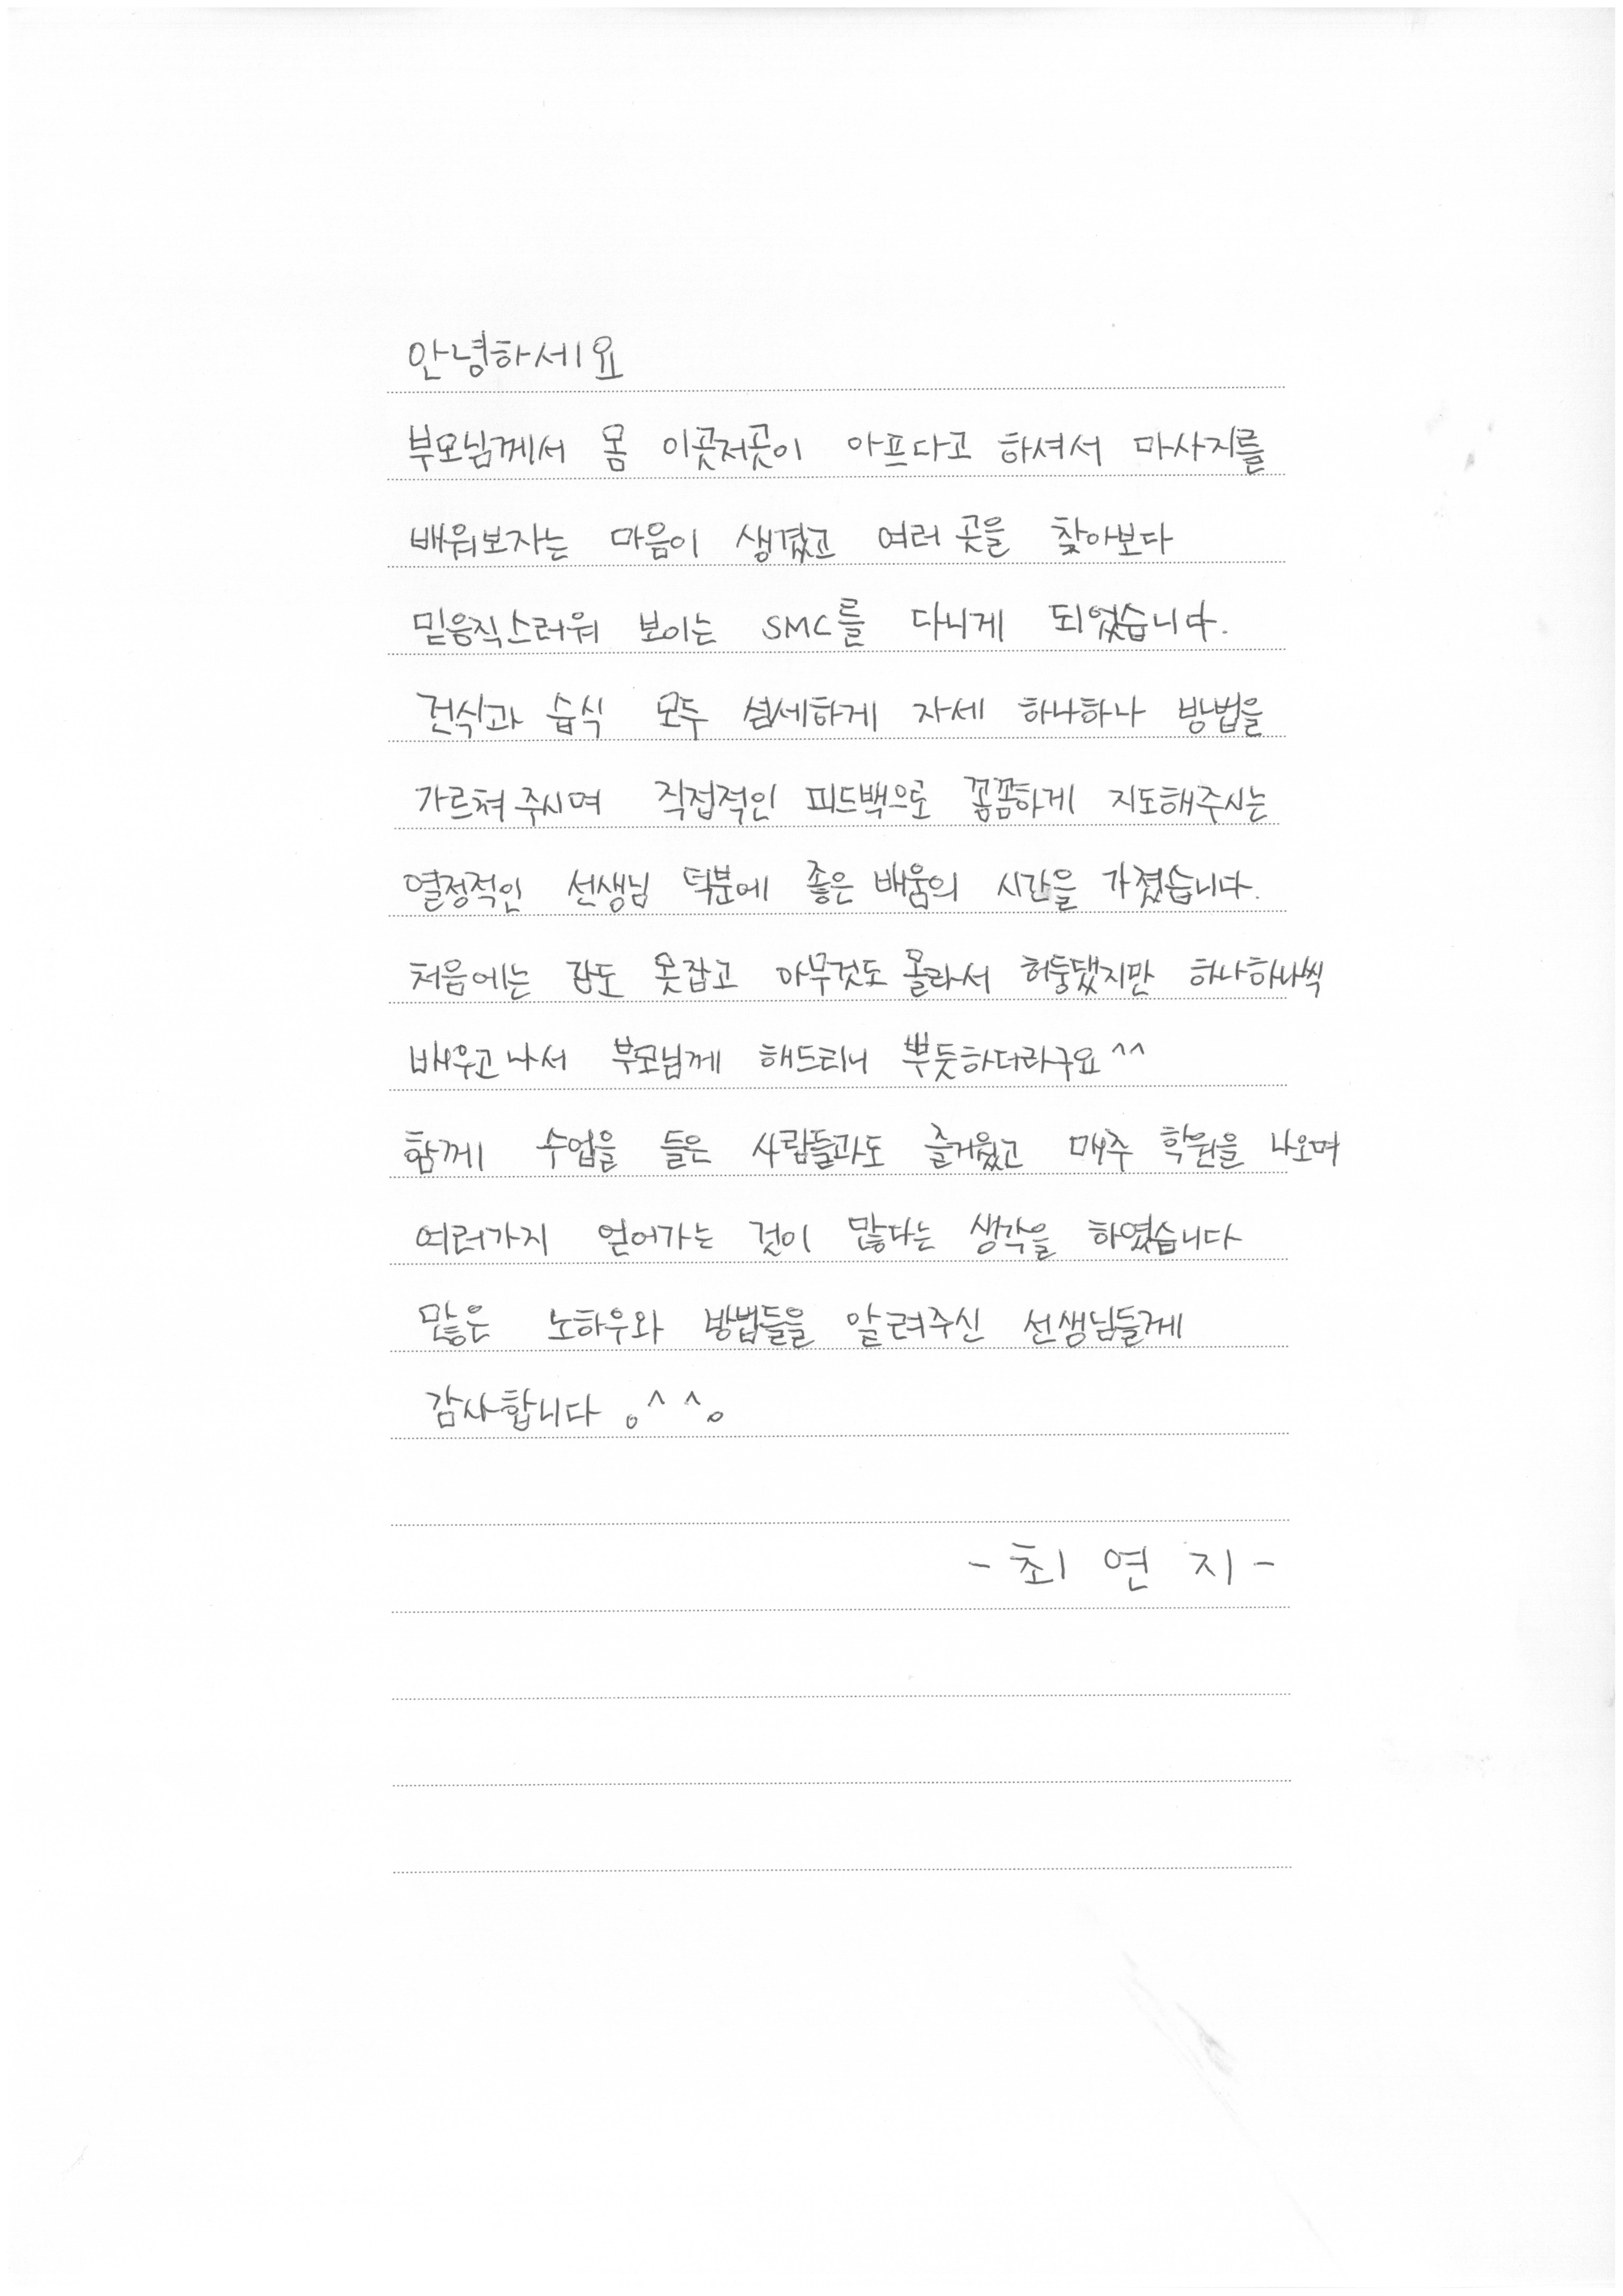 안녕하세요
부모님께서 몸 이곳저곳이 아프다고 하셔서 마사지를
배워보자는 마음이 생겼고 여러 곳을 찾아보다
믿음직스러워 보이는 SMC를 다니게 되었습니다.
건식과 습식 모두 섬세하게 자세 하나하나 방법을
가르쳐 주시며 직접적인 피드백으로 꼼꼼하게 지도해주시는
열정적인 선생님 덕분에 좋은 배움의 시간을 가졌습니다.
처음에는 감도 못잡고 아무것도 몰라서 허둥댔지만 하나하나씩
배우고 나서 부모님께 해드리니 뿌듯하더라구요^^
함께 수업을 들은 사람들과도 즐거웠고 매주 학원을 나오며
여러가지 얻어가는 것이 많다는 생각을 하였습니다
많은 노하우와 방법들을 알려주신 선생님들께
감사합니다 。^^。
- 최 연 지 -